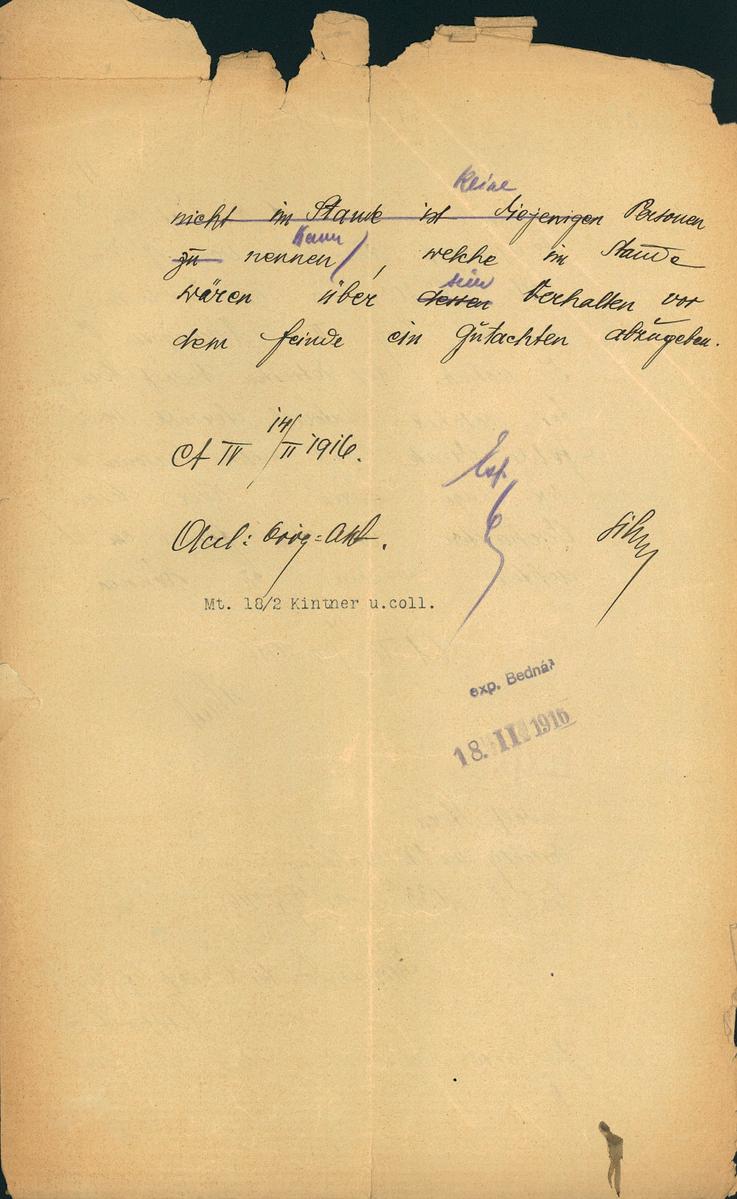 keine
nicht im Stande ist diejenigen Personen
kann
zu nennen, welche im Stande
sein
wären über dessen Verhalten vor
dem Feinde ein Gutachten abzugeben.
14/II 1916.
Orig=Akt.
Mt. 18/2 Kintner u.coll.
exp. Bednář
18. II 1916